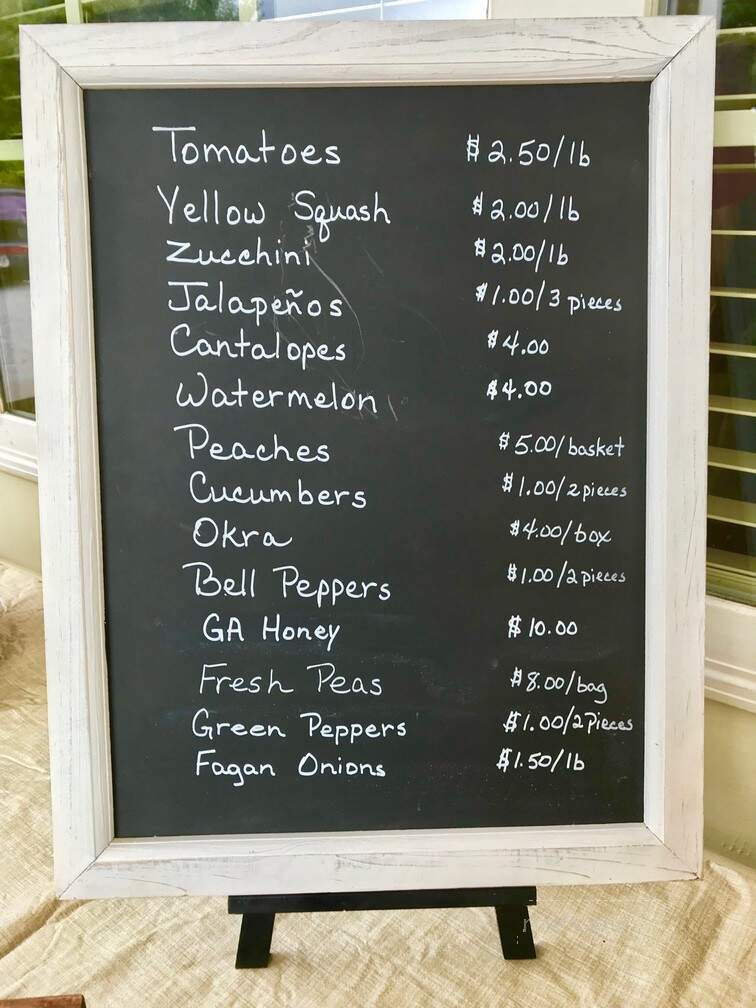 Tomatoes $2.50/lb
Yellow Squash $2.00/lb
Zucchini $2.00/lb
Jalapeños $1.00/3 pieces
Cantalopes $4.00
Watermelon $4.00
Peaches $5.00/basket
Cucumbers $1.00/2pieces
Okra $4.00/box
Bell Peppers $1.00/2pieces
GA Honey $10.00
Fresh Peas $8.00/bag
Green Peppers $1.00/2Pieces
Fagan Onions $1.50/lb